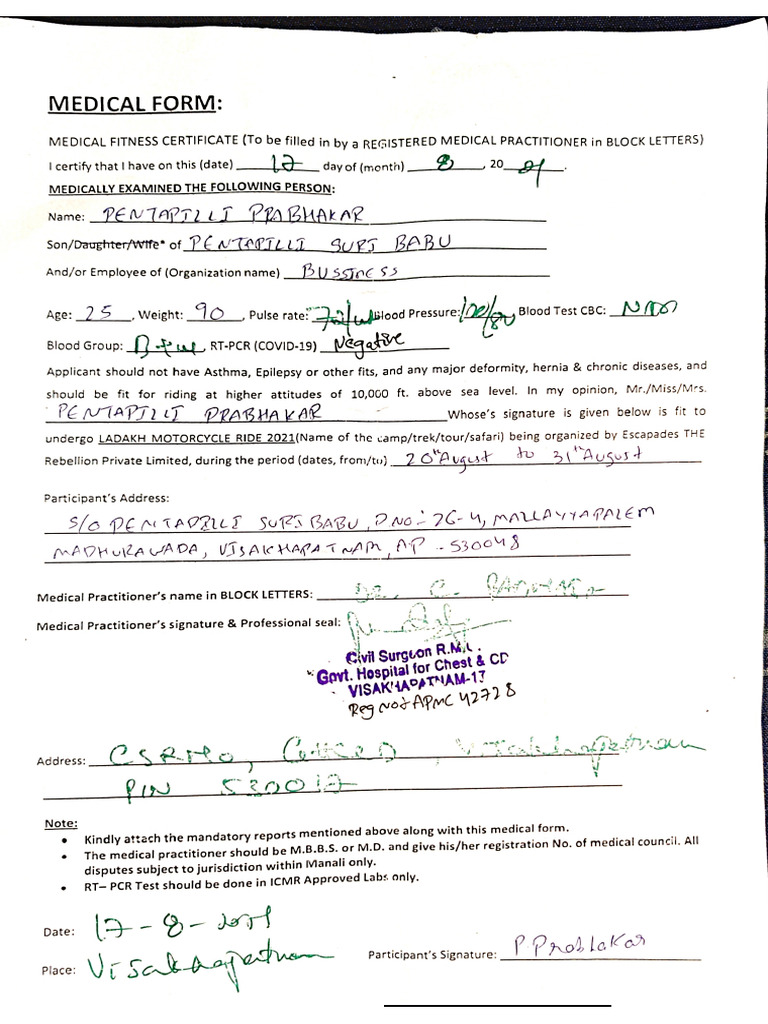 MEDICAL FORM:
MEDICAL FITNESS CERTIFICATE (To be filled in by a REGISTERED MEDICAL PRACTITIONER in BLOCK LETTERS)
I certify that I have on this (date) 17 day of (month) 8, 20 21.
MEDICALLY EXAMINED THE FOLLOWING PERSON:
Name: PENTAPILLI PRABHAKAR
Son/Daughter/Wife* of PENTAPILLI SURI BABU
And/or Employee of (Organization name) BUSSINESS
Age: 25, Weight: 90, Pulse rate: 72/ Blood Pressure: 120/80 Blood Test CBC:
Blood Group: B+ve, RT-PCR (COVID-19) Negative
Applicant should not have Asthma, Epilepsy or other fits, and any major deformity, hernia & chronic diseases, and
should be fit for riding at higher attitudes of 10,000 ft. above sea level. In my opinion, Mr./Miss/Mrs.
PENTAPILLI PRABHAKAR Whose's signature is given below is fit to
undergo LADAKH MOTORCYCLE RIDE 2021(Name of the camp/trek/tour/safari) being organized by Escapades THE
Rebellion Private Limited, during the period (dates, from/to) 20th August to 31th August
Participant's Address:
S/O PENTAPILLI SURI BABU, D.NO:- 26-4, MALLAYYAPALEM
MADHURAWADA, VISAKHAPATNAM, AP - 530048
Medical Practitioner's name in BLOCK LETTERS: DR. C.
Medical Practitioner's signature & Professional seal:
Civil Surgeon R.M.O.
Govt. Hospital for Chest & CD
VISAKHAPATNAM-17
Reg No: APMC 42728
Address: CSRMO, GHCCD, Visakhapatnam
PIN 530017
Note:
• Kindly attach the mandatory reports mentioned above along with this medical form.
• The medical practitioner should be M.B.B.S. or M.D. and give his/her registration No. of medical council. All
disputes subject to jurisdiction within Manali only.
• RT– PCR Test should be done in ICMR Approved Labs only.
Date: 17-8-2021
Place: Visakhapatnam
Participant's Signature: P. Prabhakar